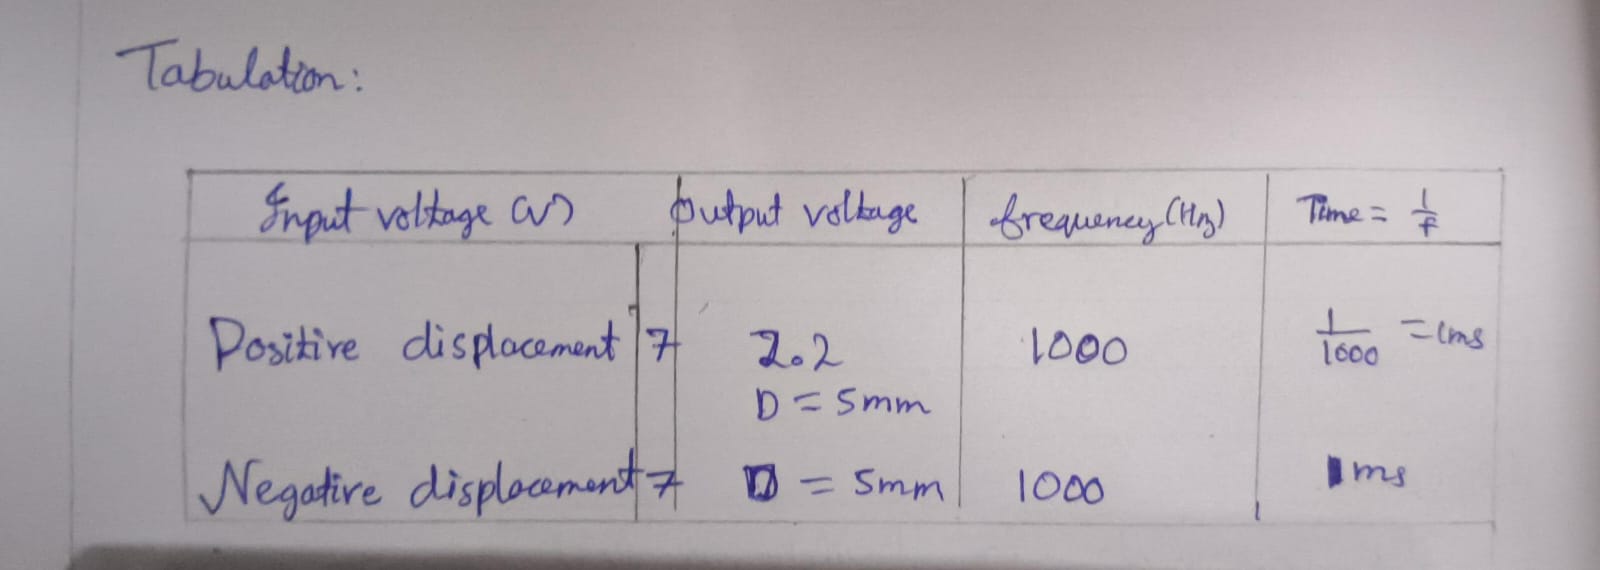 Tabulation:
Input voltage (V) Output voltage frequency (Hz) Time = 1/f
Positive displacement 7 2.2 1000 1/1000 = 1ms
D = 5mm
Negative displacement 7 D = 5mm 1000 1ms